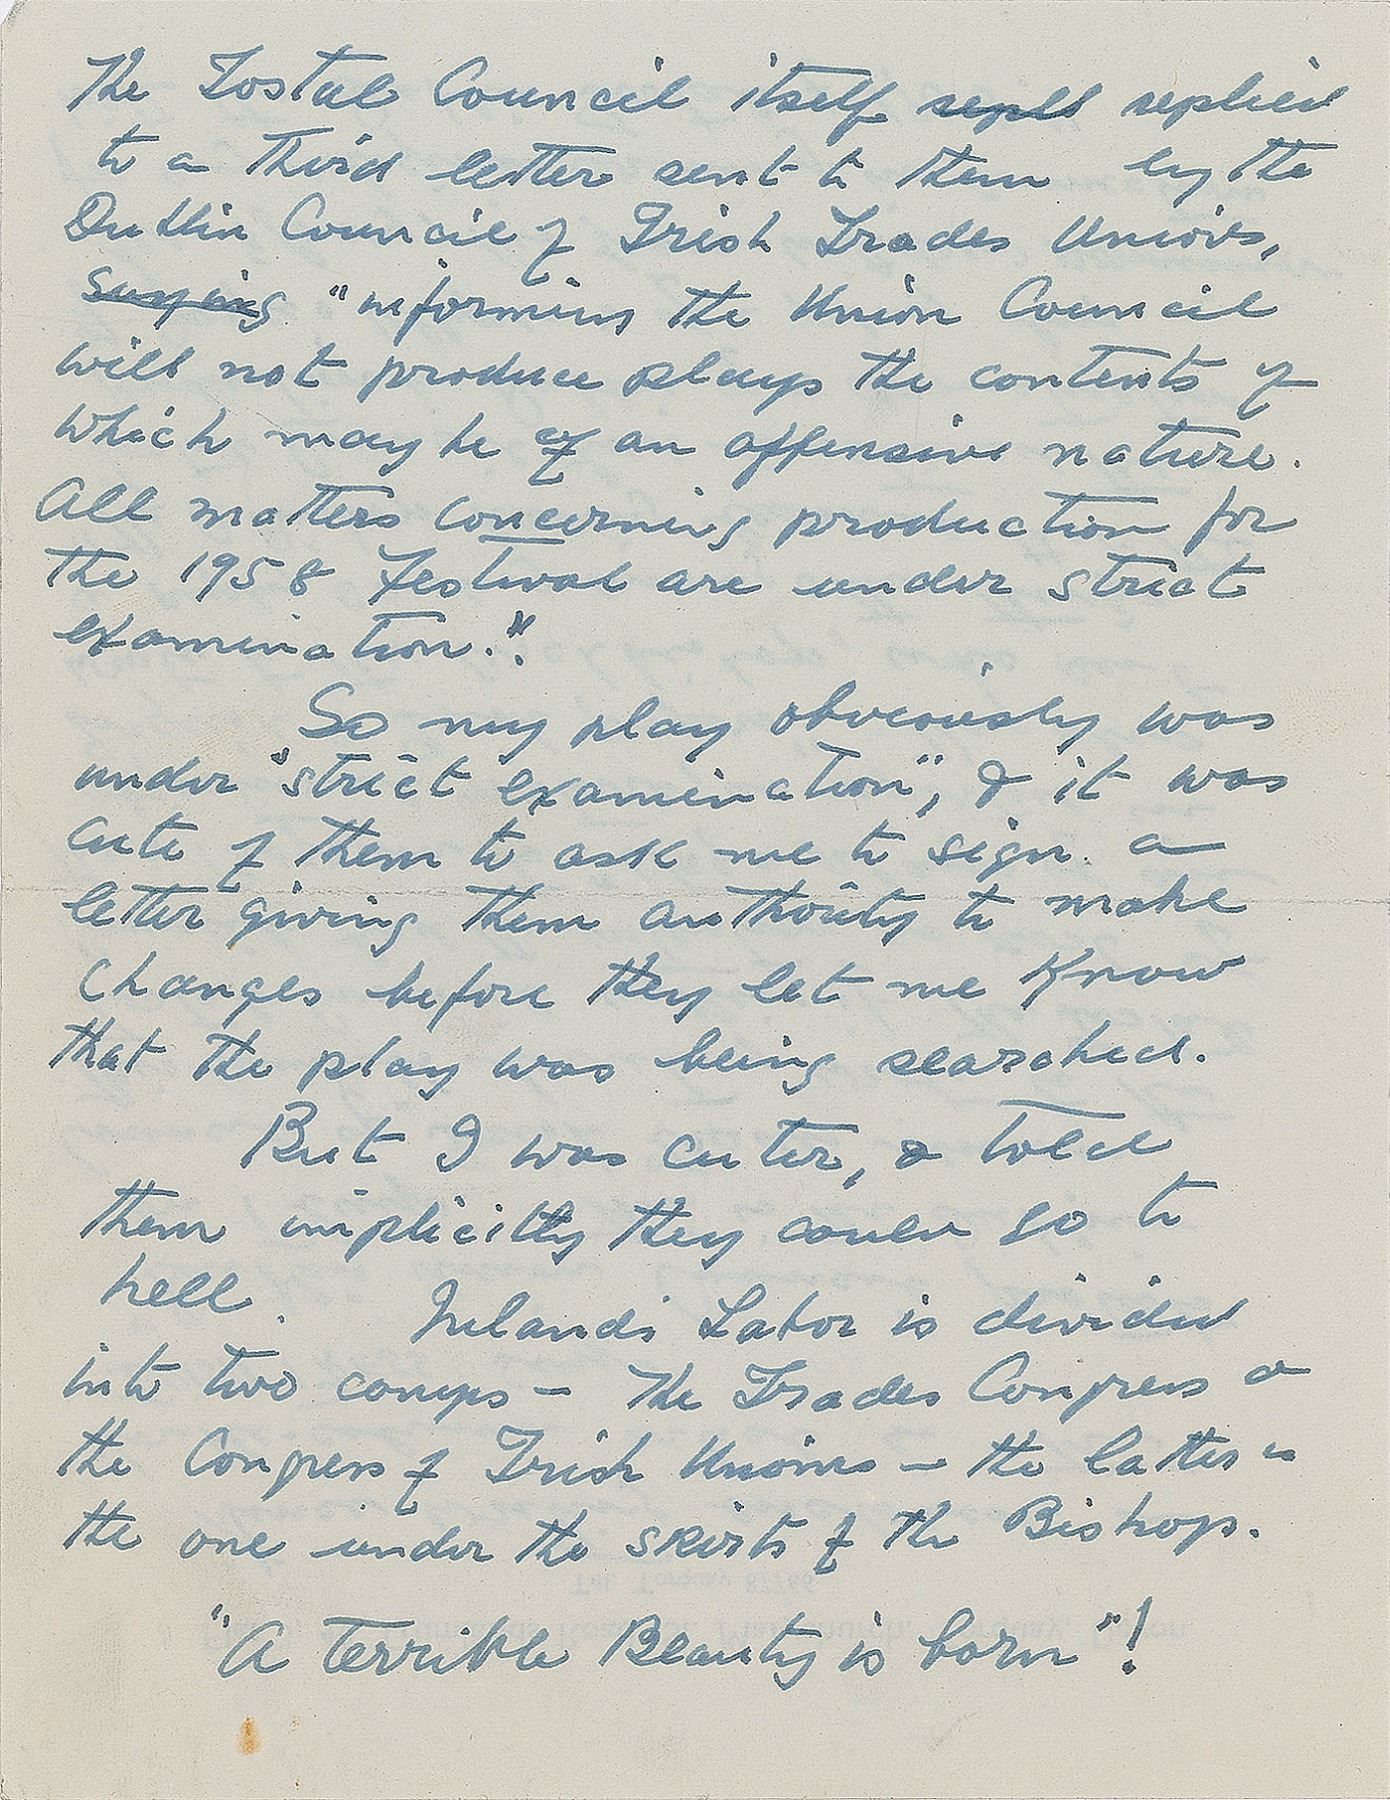 The Tostal Council itself repll replied
to a third letter sent to them by the
Dublin Council of Irish Trades Unions,
saying "informing the Union Council
will not produce plays the contents of
which may be of an offensive nature.
All matters concerning production for
the 1958 Festival are under strict
examination.".
So my play obviously was
under "strict examination", & it was
cute of them to ask me to sign a
letter giving them authority to make
changes before they let me know
that the play was being searched.
But I was cuter, & told
them implicitly they could go to
hell. Irelands Labor is divided
into two camps — The Trades Congress &
the Congress of Irish Unions — the latter is
the one under the skirts of the Bishop.
"A Terrible Beauty is born"!